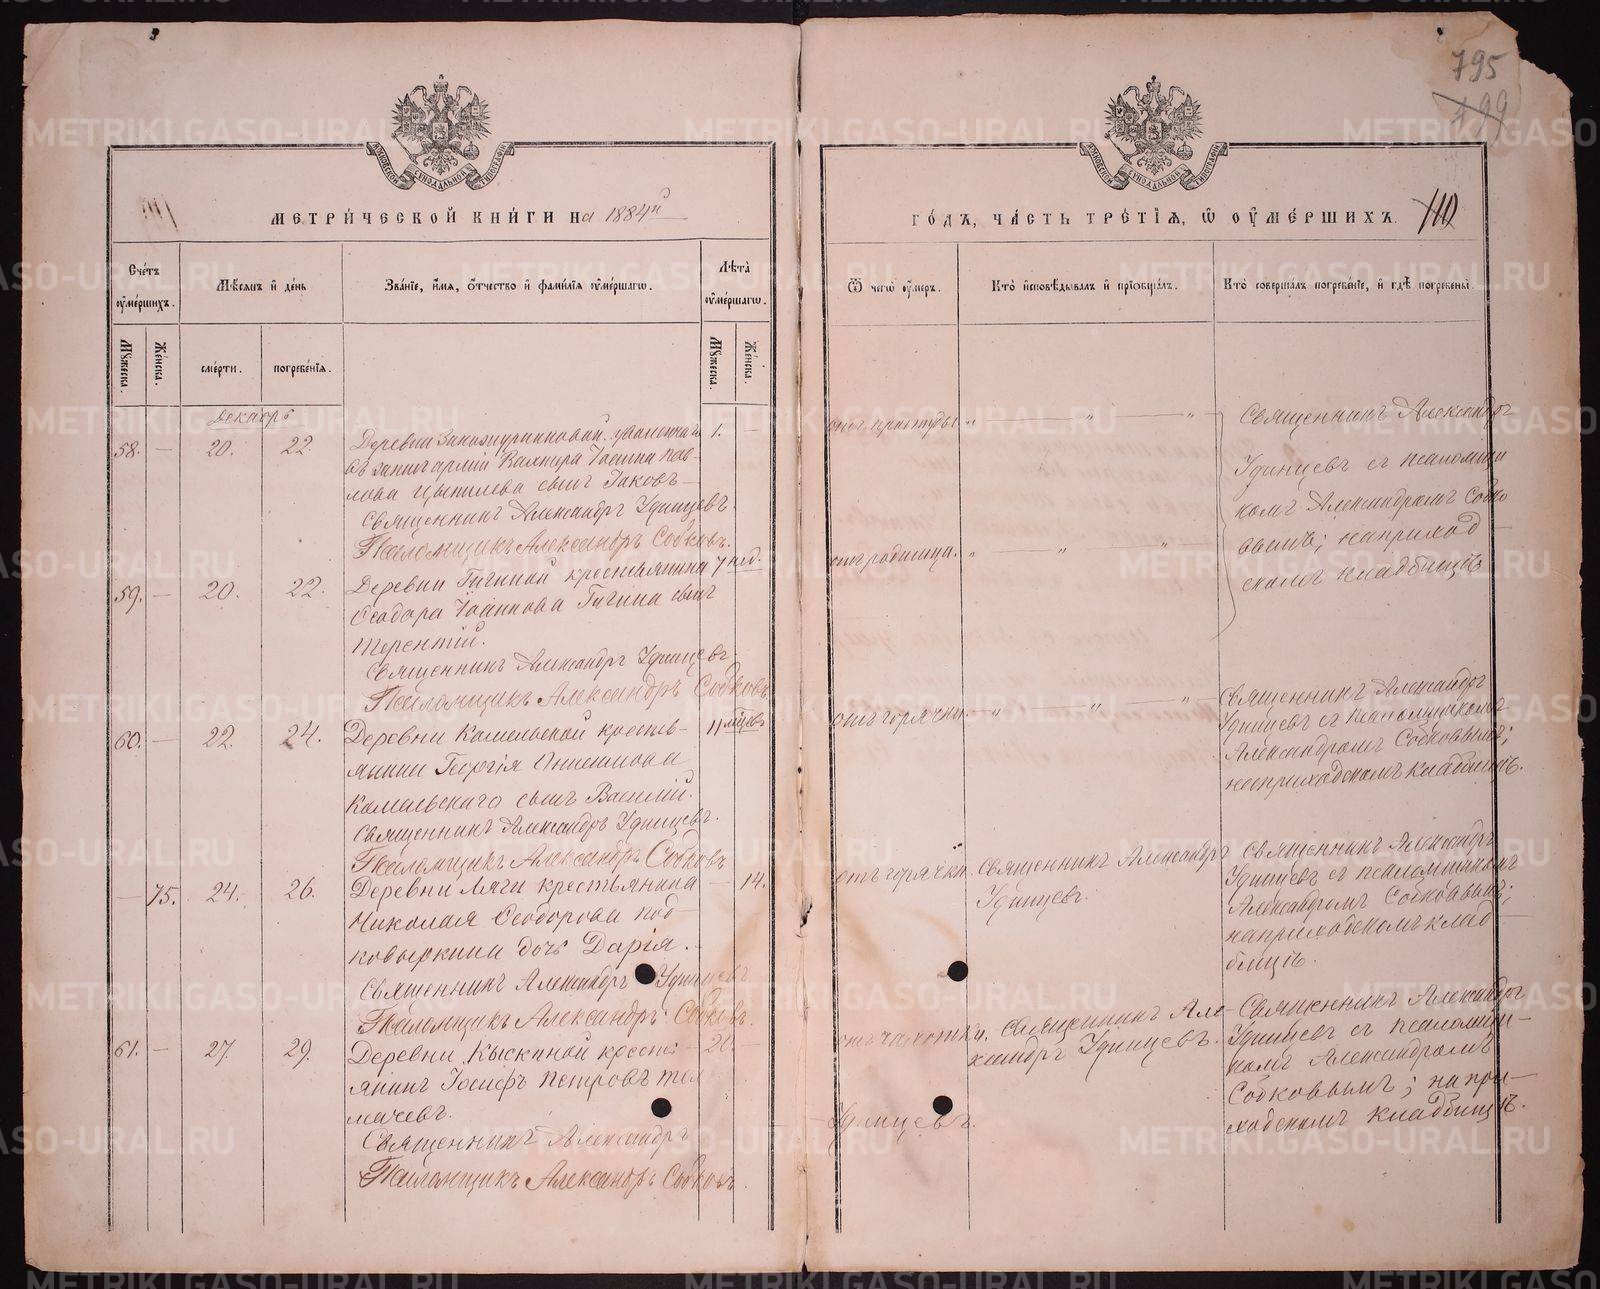 795
199
МЕТРИ́ЧЕСКОЙ КНИ́ГИ На 1884й
ГО́ДЪ, ЧА́СТЬ ТРЕ́ТІѦ, Ѿ ОУМЕ́РШИХЪ.
110
Сче́тъ оумершихъ.
Мѣсяцъ и день
Зва́ніе, и́мя, о́тчество и фами́лія оуме́ршагω.
Лѣта оуме́ршагω.
Ѿ чегω оумеръ.
Кто исповѣдывалъ и пріобщалъ.
Кто совершалъ погребе́ніе, и гдѣ погребены.
Мужеска.
Женска.
сме́рти.
погребе́нія.
Мужеска.
Женска.
Декабрь
58. — 20. 22.
Деревни уволеннаго 1. —
въ запас арміи Іосифа Пав-
лова Цыпилева сынъ Іаковъ
Священникъ Александръ Удинцевъ.
Псаломщикъ Александръ Собковъ.
отъ простуды. „ — „ — „ —
Священникъ Александръ
Удинцевъ съ псаломщи
комъ Александромъ Собко
вымъ; на приход
скомъ кладбищѣ
59. — 20. 22.
Деревни Гигиной крестьянина 7 нед.
Ѳеодора Іоаннова Гигина сынъ
Терентій.
Священникъ Александръ Удинцевъ
Псаломщикъ Александръ Собковъ
отъ родимца. „ — „ — „ —
60. — 22. 24.
Деревни Комельской кресть- 11 мѣсяц.
янина Георгія
Комельскаго сынъ Василій.
Священникъ Александръ Удинцевъ.
Псаломщикъ Александръ Собковъ
отъ горячки. — „ — „ — „ —
Священникъ Александръ
Удинцевъ съ псаломщикомъ
Александромъ Собковымъ;
на приходскомъ кладбищѣ.
— 75. 24. 26.
Деревни Ляги крестьянина — 14.
Николая Ѳеодорова Под
ковыркина дочь Дарія.
Священникъ Александръ Удинцевъ
Псаломщикъ Александръ Собковъ.
отъ горячки.
Священникъ Александръ
Удинцевъ.
Священникъ Александръ
Удинцевъ съ псаломщикомъ
Александромъ Собковымъ;
на приходскомъ клад
бищѣ.
61. — 27. 29.
Деревни Кыскиной кресть 20. —
янинъ Іосифъ Петровъ Тол
мачевъ.
Священникъ Александръ
Удинцевъ.
Псаломщикъ Александръ Собковъ.
отъ чахотки.
Священникъ Але-
ксандръ Удинцевъ.
Священникъ Александръ
Удинцевъ съ псаломщи-
комъ Александромъ
Собковымъ; на при-
ходскомъ кладбищѣ.
METRIKI.GASO-URAL.RU